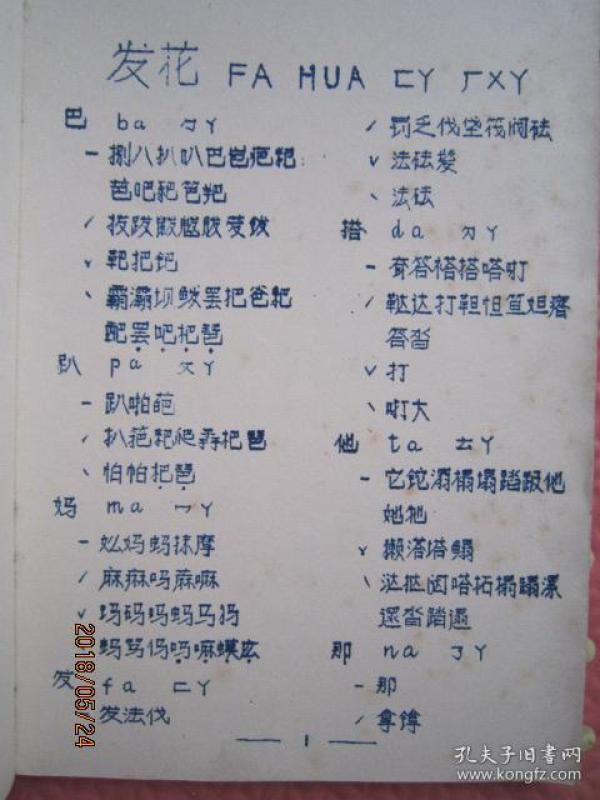 发花 FA HUA ㄈㄚ ㄏㄨㄚ
巴 ba ㄅㄚ
一 捌八扒叭巴岜疤粑
芭吧耙笆羓
ˊ 拔跋菝
ˇ 靶把钯
ˋ 霸灞坝鲅罢把爸耙
罢吧把琶
趴 pa ㄆㄚ
一 趴啪葩
ˊ 扒筢耙爬掱把琶
ˋ 怕帕把琶
妈 ma ㄇㄚ
一 妈蚂抹摩
ˊ 麻痳吗蔴嘛
ˇ 玛码吗蚂马犸
蚂骂吗嘛蟆
发 fa ㄈㄚ
发法伐
ˊ 罚乏伐垡筏阀砝
ˇ 法砝髮
ˋ 法砝
搭 da ㄉㄚ
一 耷答搭嗒
ˊ 鞑达打靼怛笪妲瘩
答沓
ˇ 打
ˋ 大
他 ta ㄊㄚ
一 它铊溻褟塌踏趿他
她牠
ˇ 獭塔鳎
ˋ 挞闼嗒拓榻蹋漯
遝沓踏遢
那 na ㄋㄚ
一 那
ˊ 拿镎
1
2018/05/24
孔夫子旧书网
www.kongfz.com